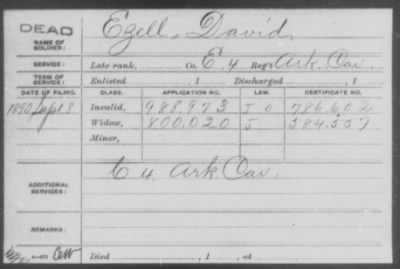 DEAD
NAME OF SOLDIER: Ezell, David
SERVICE: Late rank, Co. E. 4 Reg't Ark Cav.
TERM OF SERVICE: Enlisted , 1 Discharged , 1
DATE OF FILING. CLASS. APPLICATION NO. LAW. CERTIFICATE NO.
1890 Sept 8 Invalid, 988.973 J O 786.602
Widow, 800.020 J 584.557
Minor,
ADDITIONAL SERVICES: C 4. Ark Cav.
REMARKS:
Died , 1 , at